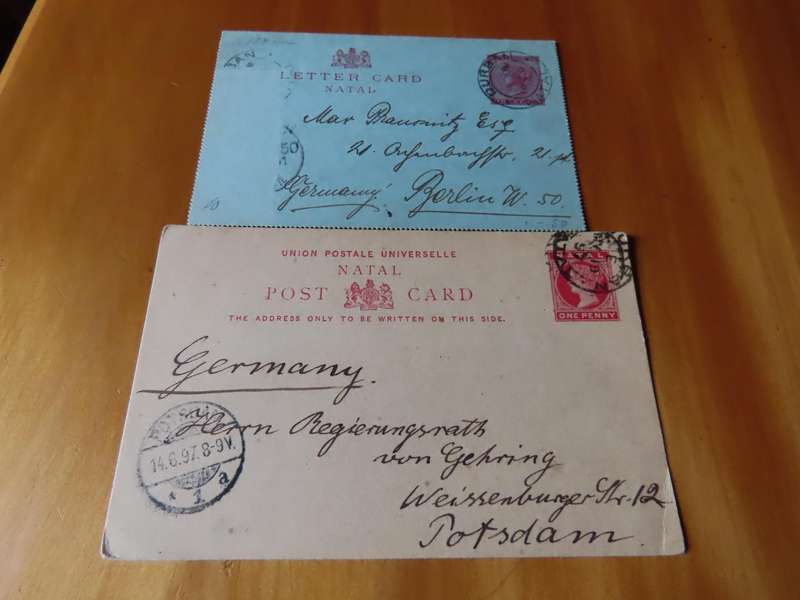 LETTER CARD
NATAL
DURBAN
Esq
21. Achenbachstr. 21. pt.
Germany. Berlin W. 50.
50
UNION POSTALE UNIVERSELLE
NATAL
POST CARD
THE ADDRESS ONLY TO BE WRITTEN ON THIS SIDE.
NATAL
ONE PENNY
Germany.
Herrn Regierungsrath
von Gehring
Weissenburger Str. 12
Potsdam.
14.6.97. 8-9V.
* 1 a